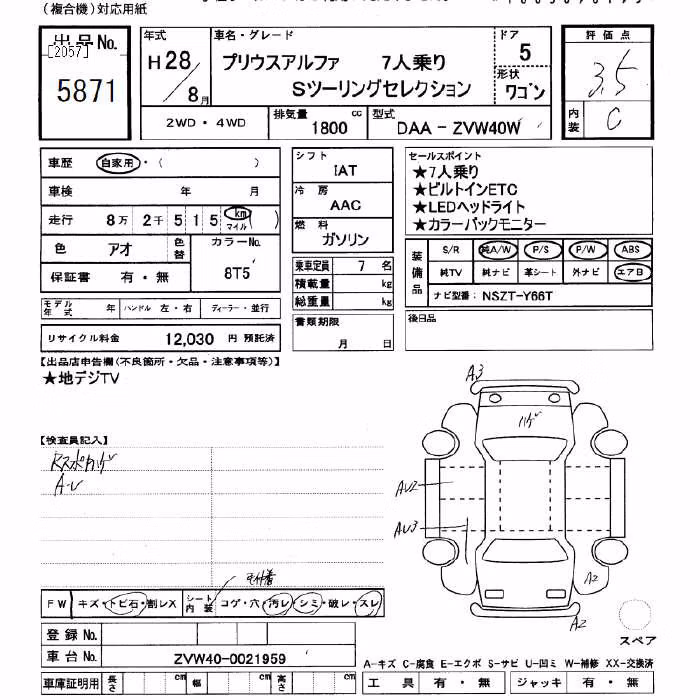 (複合機)対応用紙
出品No.
[2057]
5871
年式
H28/8月
車名・グレード
プリウスアルファ 7人乗り
Sツーリングセレクション
ドア
5
形状
ワゴン
評価点
3.5
内装
C
2WD・4WD
排気量
1800cc
型式
DAA-ZVW40W
車歴 自家用・( )
車検 年 月
走行 8万2千515km マイル
色 アオ
色替
カラーNo.
8T5
保証書 有・無
モデル年式 年
ハンドル 左・右
ディーラー・並行
リサイクル料金 12,030円 預託済
シフト
IAT
冷房
AAC
燃料
ガソリン
乗車定員 7名
積載量 kg
総重量 kg
書類期限
月 日
セールスポイント
★7人乗り
★ビルトインETC
★LEDヘッドライト
★カラーバックモニター
装備品
S/R 純A/W P/S P/W ABS
純TV 純ナビ 革シート 外ナビ エアB
ナビ型番: NSZT-Y66T
後日品
【出品店申告欄(不良箇所・欠品・注意事項等)】
★地デジTV
【検査員記入】
A-U
A3
ハゲ
AU2
AU3
A2
A2
スペア
FW キズ・トビ石・割レX
シート内装 コゲ・穴・汚レ・シミ・破レ・スレ
登録No.
車台No. ZVW40-0021959
車庫証明用 長さ cm 幅 cm 高さ cm
A-キズ C-腐食 E-エクボ S-サビ U-凹ミ W-補修 XX-交換済
工具 有・無 ジャッキ 有・無